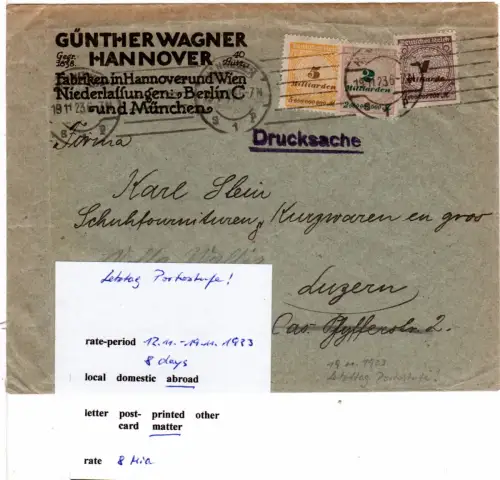 GÜNTHER WAGNER
Gegr. 1838. HANNOVER 40
Fabriken in Hannover und Wien
Niederlassungen: Berlin C
und München
19.11.23.6-7N
S 1 P
5
Milliarden
2
Milliarden
Deutsches Reich
Milliarden
Drucksache
Firma
Karl Stein
Schuhfournituren, Kurzwaren en gros
Luzern
Cas. Pfyfferstr. 2.
19.11.1923
Letzttag Portostufe!
Letzttag Portostufe!
rate-period 12.11.-19.11.1923
8 days
local domestic abroad
letter post- printed other
card matter
rate 8 Mia